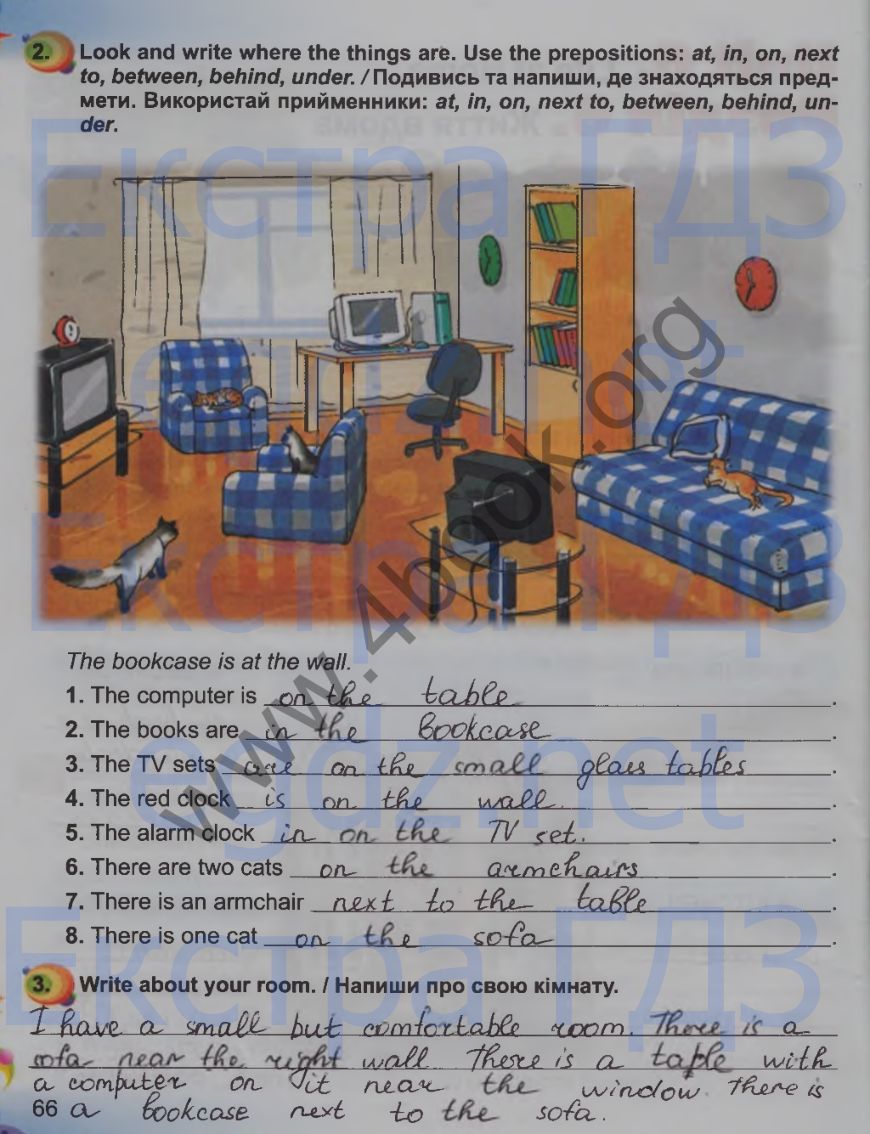 2. Look and write where the things are. Use the prepositions: at, in, on, next
to, between, behind, under. / Подивись та напиши, де знаходяться пред-
мети. Використай прийменники: at, in, on, next to, between, behind, un-
der.
Екстра ГДЗ
egdz.net
www.4book.org
Екстра ГДЗ
The bookcase is at the wall.
1. The computer is on the table.
2. The books are in the bookcase.
3. The TV sets are on the small glass tables.
4. The red clock is on the wall.
5. The alarm clock in on the TV set.
6. There are two cats on the armchairs.
7. There is an armchair next to the table.
8. There is one cat on the sofa.
egdz.net
Екстра ГДЗ
3. Write about your room. / Напиши про свою кімнату.
I have a small but comfortable room. There is a
sofa near the right wall There is a table with
a computer on it near the window. There is
66 a bookcase next to the sofa.